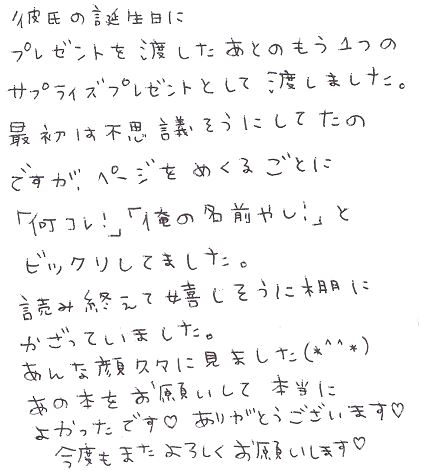 彼氏の誕生日に
プレゼントを渡したあとのもう1つの
サプライズプレゼントとして渡しました。
最初は不思議そうにしてたの
ですが、ページをめくるごとに
「何コレ!」「俺の名前やし!」と
ビックリしてました。
読み終えて嬉しそうに棚に
かざっていました。
あんな顔久々に見ました(*^^*)
あの本をお願いして本当に
よかったです♡ ありがとうございます♡
今度もまたよろしくお願いします♡